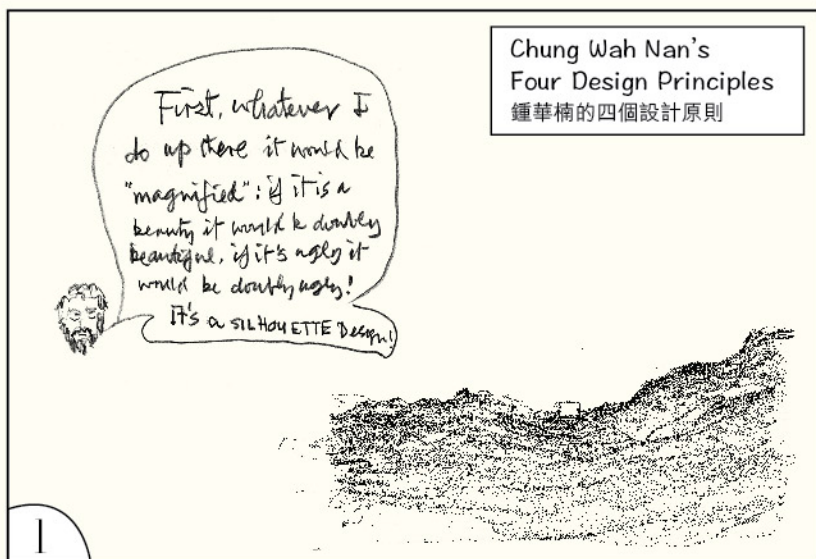 Chung Wah Nan's
Four Design Principles
鍾華楠的四個設計原則
First, whatever I
do up there it would be
"magnified": if it is a
beauty it would be doubly
beautiful, if it's ugly it
would be doubly ugly!
It's a SILHOUETTE Design!
1